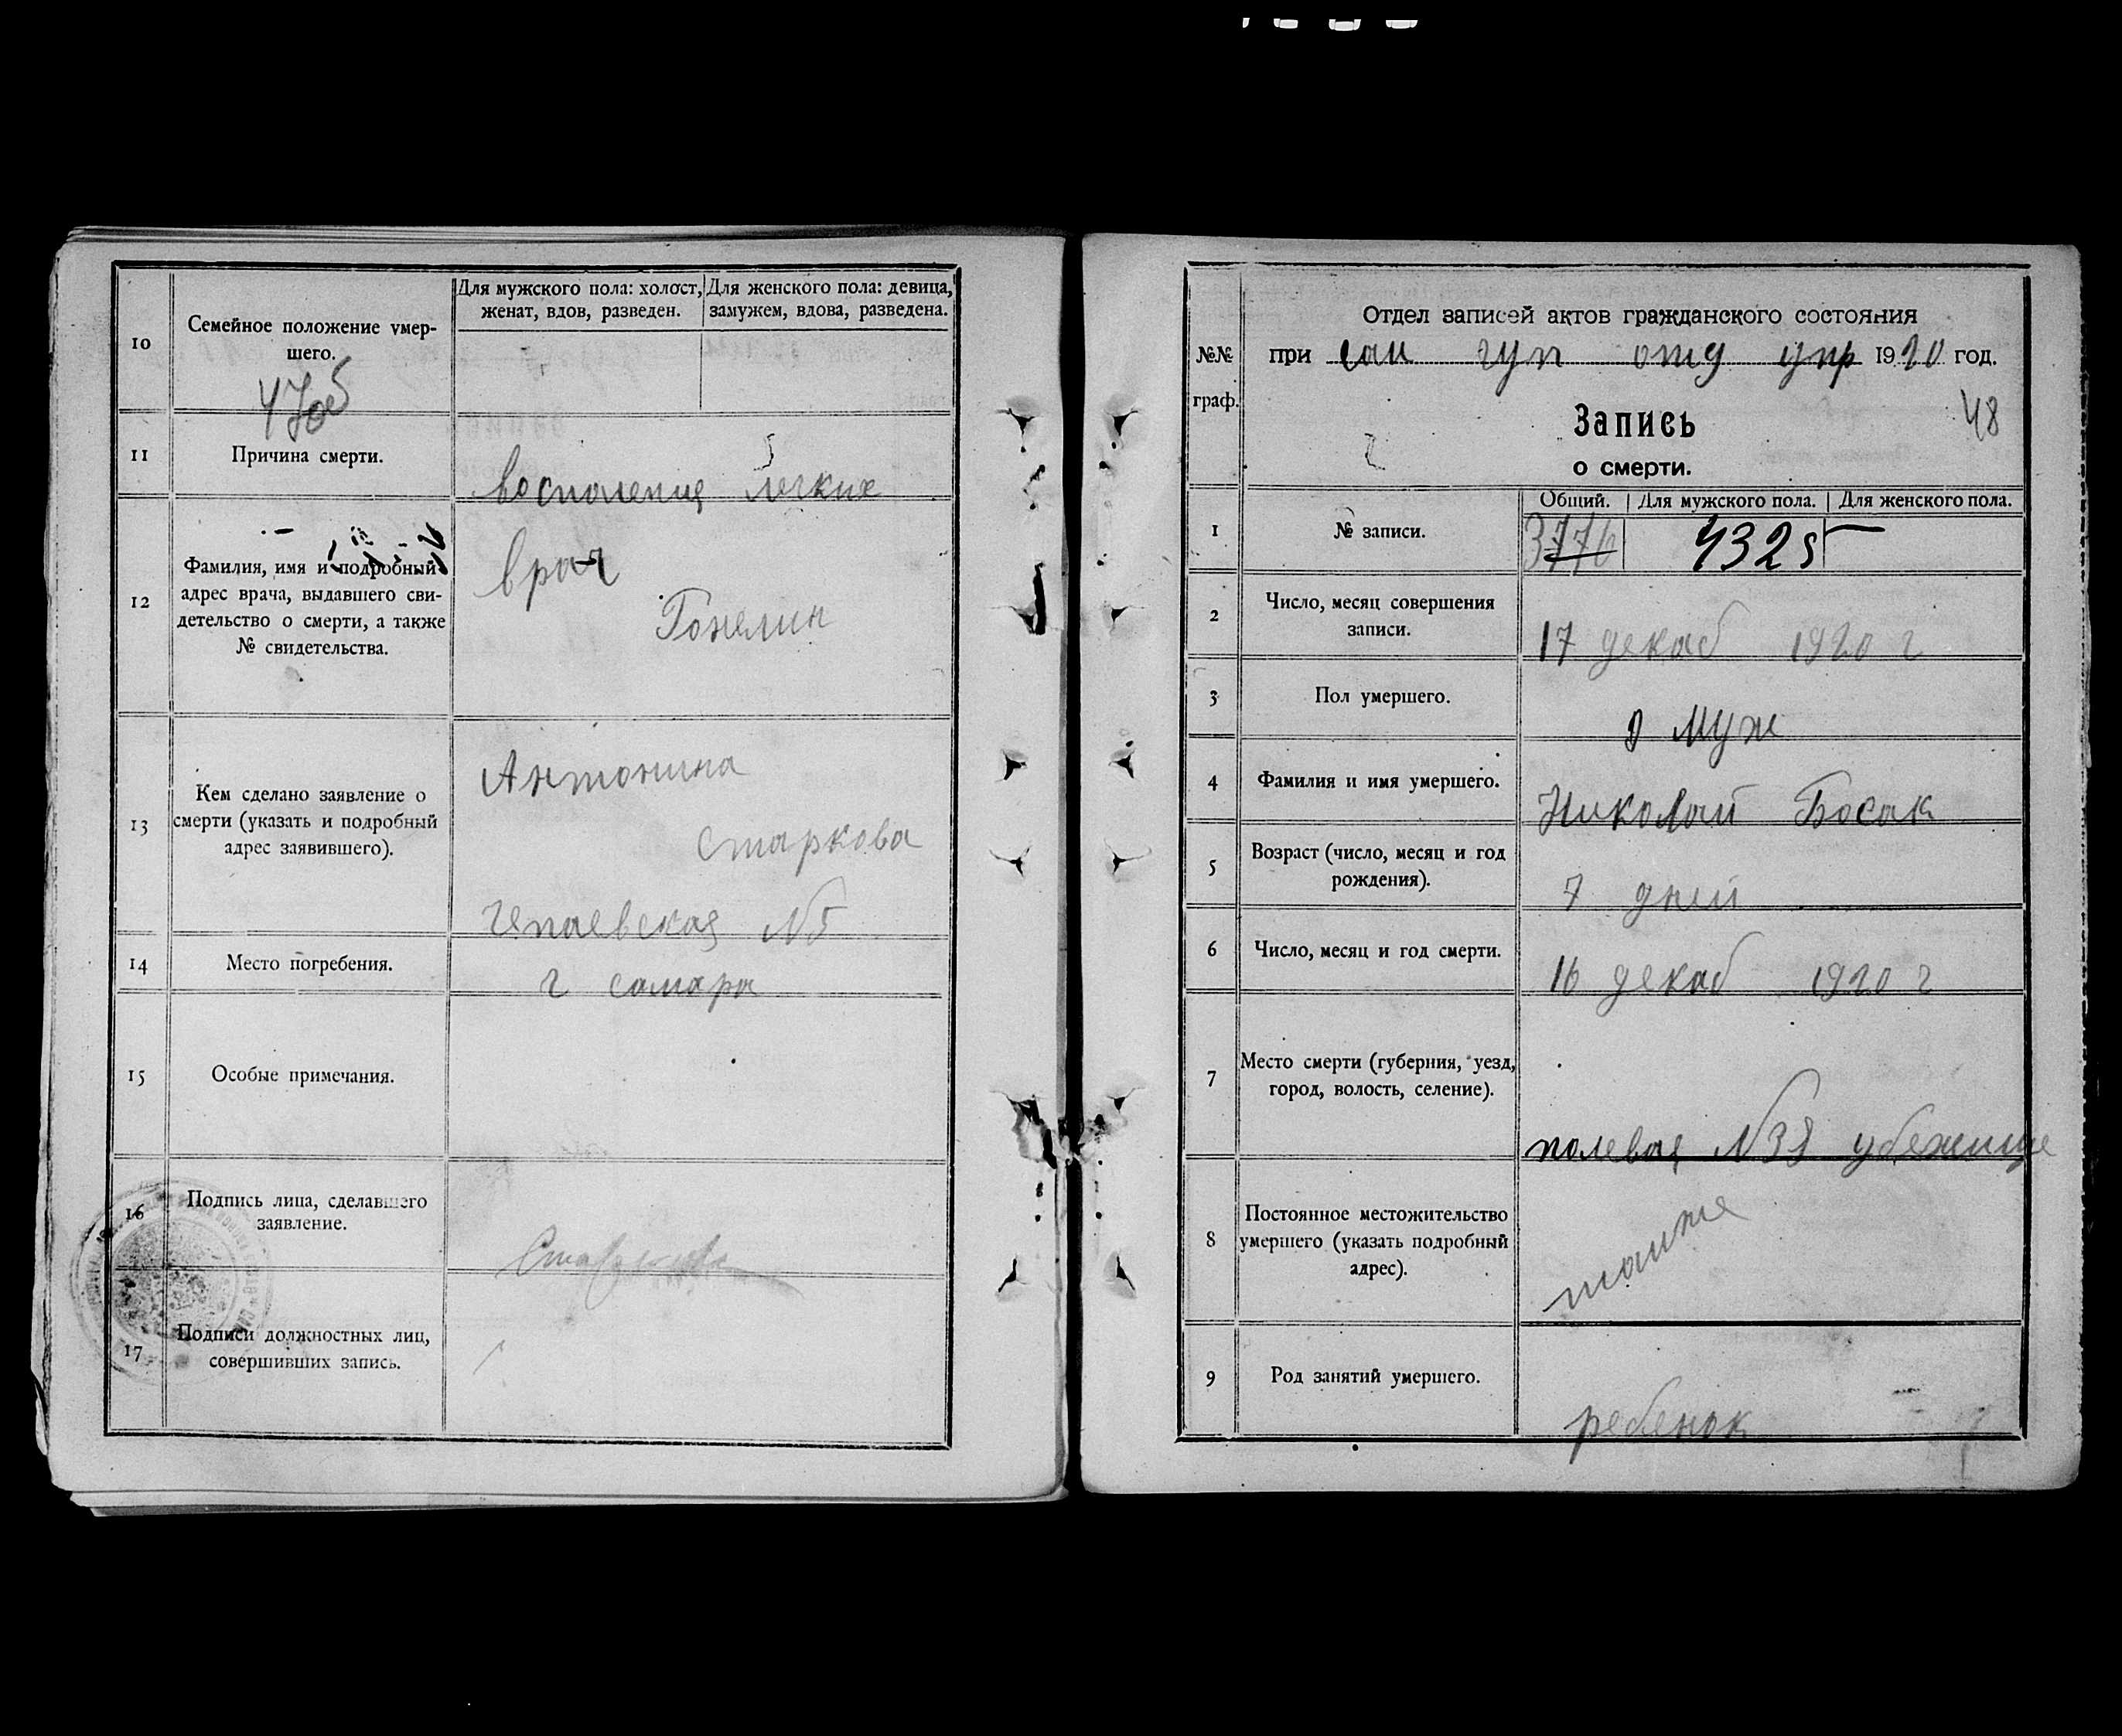 10
Семейное положение умер-
шего.
Для мужского пола: холост,
женат, вдов, разведен.
Для женского пола: девица,
замужем, вдова, разведена.
11
Причина смерти.
воспаления легких
12
Фамилия, имя и подробный
адрес врача, выдавшего сви-
детельство о смерти, а также
№ свидетельства.
врач
13
Кем сделано заявление о
смерти (указать и подробный
адрес заявившего).
Антонина
Старкова
Чепаевская №5
14
Место погребения.
г самара
15
Особые примечания.
16
Подпись лица, сделавшего
заявление.
17
Подписи должностных лиц,
совершивших запись.
№№
граф.
Отдел записей актов гражданского состояния
при сам гуп отд упр 1920 год.
48
Запись
о смерти.
Общий. Для мужского пола. Для женского пола.
1
№ записи.
3776 4325 —
2
Число, месяц совершения
записи.
17 декаб 1920 г
3
Пол умершего.
муж
4
Фамилия и имя умершего.
Николай Босак
5
Возраст (число, месяц и год
рождения).
7 дней
6
Число, месяц и год смерти.
16 декаб 1920 г
7
Место смерти (губерния, уезд,
город, волость, селение).
полевая №38 убежище
8
Постоянное местожительство
умершего (указать подробный
адрес).
тамже
9
Род занятий умершего.
ребенок